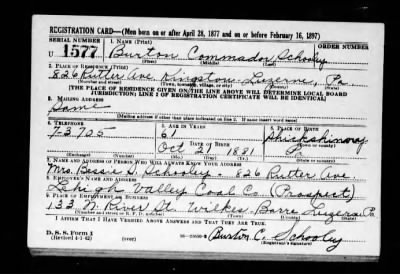 REGISTRATION CARD—(Men born on or after April 28, 1877 and on or before February 16, 1897)
SERIAL NUMBER 1. NAME (Print)
U 1577 Burton Commador Schooley
(First) (Middle) (Last)
2. PLACE OF RESIDENCE (Print)
826 Rutter Ave. Kingston Luzerne, Pa.
(Number and street) (Town, township, village, or city) (County) (State)
[THE PLACE OF RESIDENCE GIVEN ON THE LINE ABOVE WILL DETERMINE LOCAL BOARD
JURISDICTION; LINE 2 OF REGISTRATION CERTIFICATE WILL BE IDENTICAL]
3. MAILING ADDRESS
Same
[Mailing address if other than place indicated on line 2. If same insert word same]
4. TELEPHONE 5. AGE IN YEARS 6. PLACE OF BIRTH
7-3705 61 Shickshinny
DATE OF BIRTH (Town or county)
Oct 21 1881 Pa
(Exchange) (Number) (Mo.) (Day) (Yr.) (State or country)
7. NAME AND ADDRESS OF PERSON WHO WILL ALWAYS KNOW YOUR ADDRESS
Mrs. Bessie S. Schooley - 826 Rutter Ave.
8. EMPLOYER'S NAME AND ADDRESS
Lehigh Valley Coal Co (Prospect)
9. PLACE OF EMPLOYMENT OR BUSINESS
133 N. River St. Wilkes Barre Luzerne Pa
(Number and street or R. F. D. number) (Town) (County) (State)
I AFFIRM THAT I HAVE VERIFIED ABOVE ANSWERS AND THAT THEY ARE TRUE.
D. S. S. Form 1
(Revised 4-1-42) (over) Burton C. Schooley
(Registrant's signature)